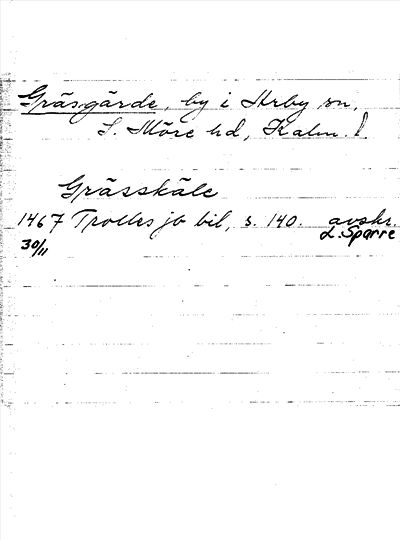 Gräsgärde, by i Arby sn,
S. Möre hd, Kalm. l.
Grässkäle
1467 Trolles jb bil, s. 140. avskr.
30/11 L. Sparre